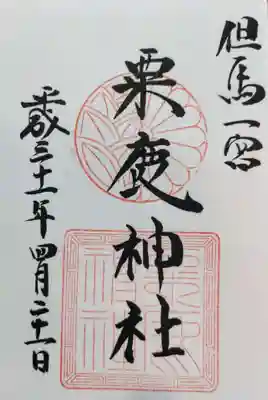 但馬一宮
粟鹿神社
平成三十一年四月二十一日